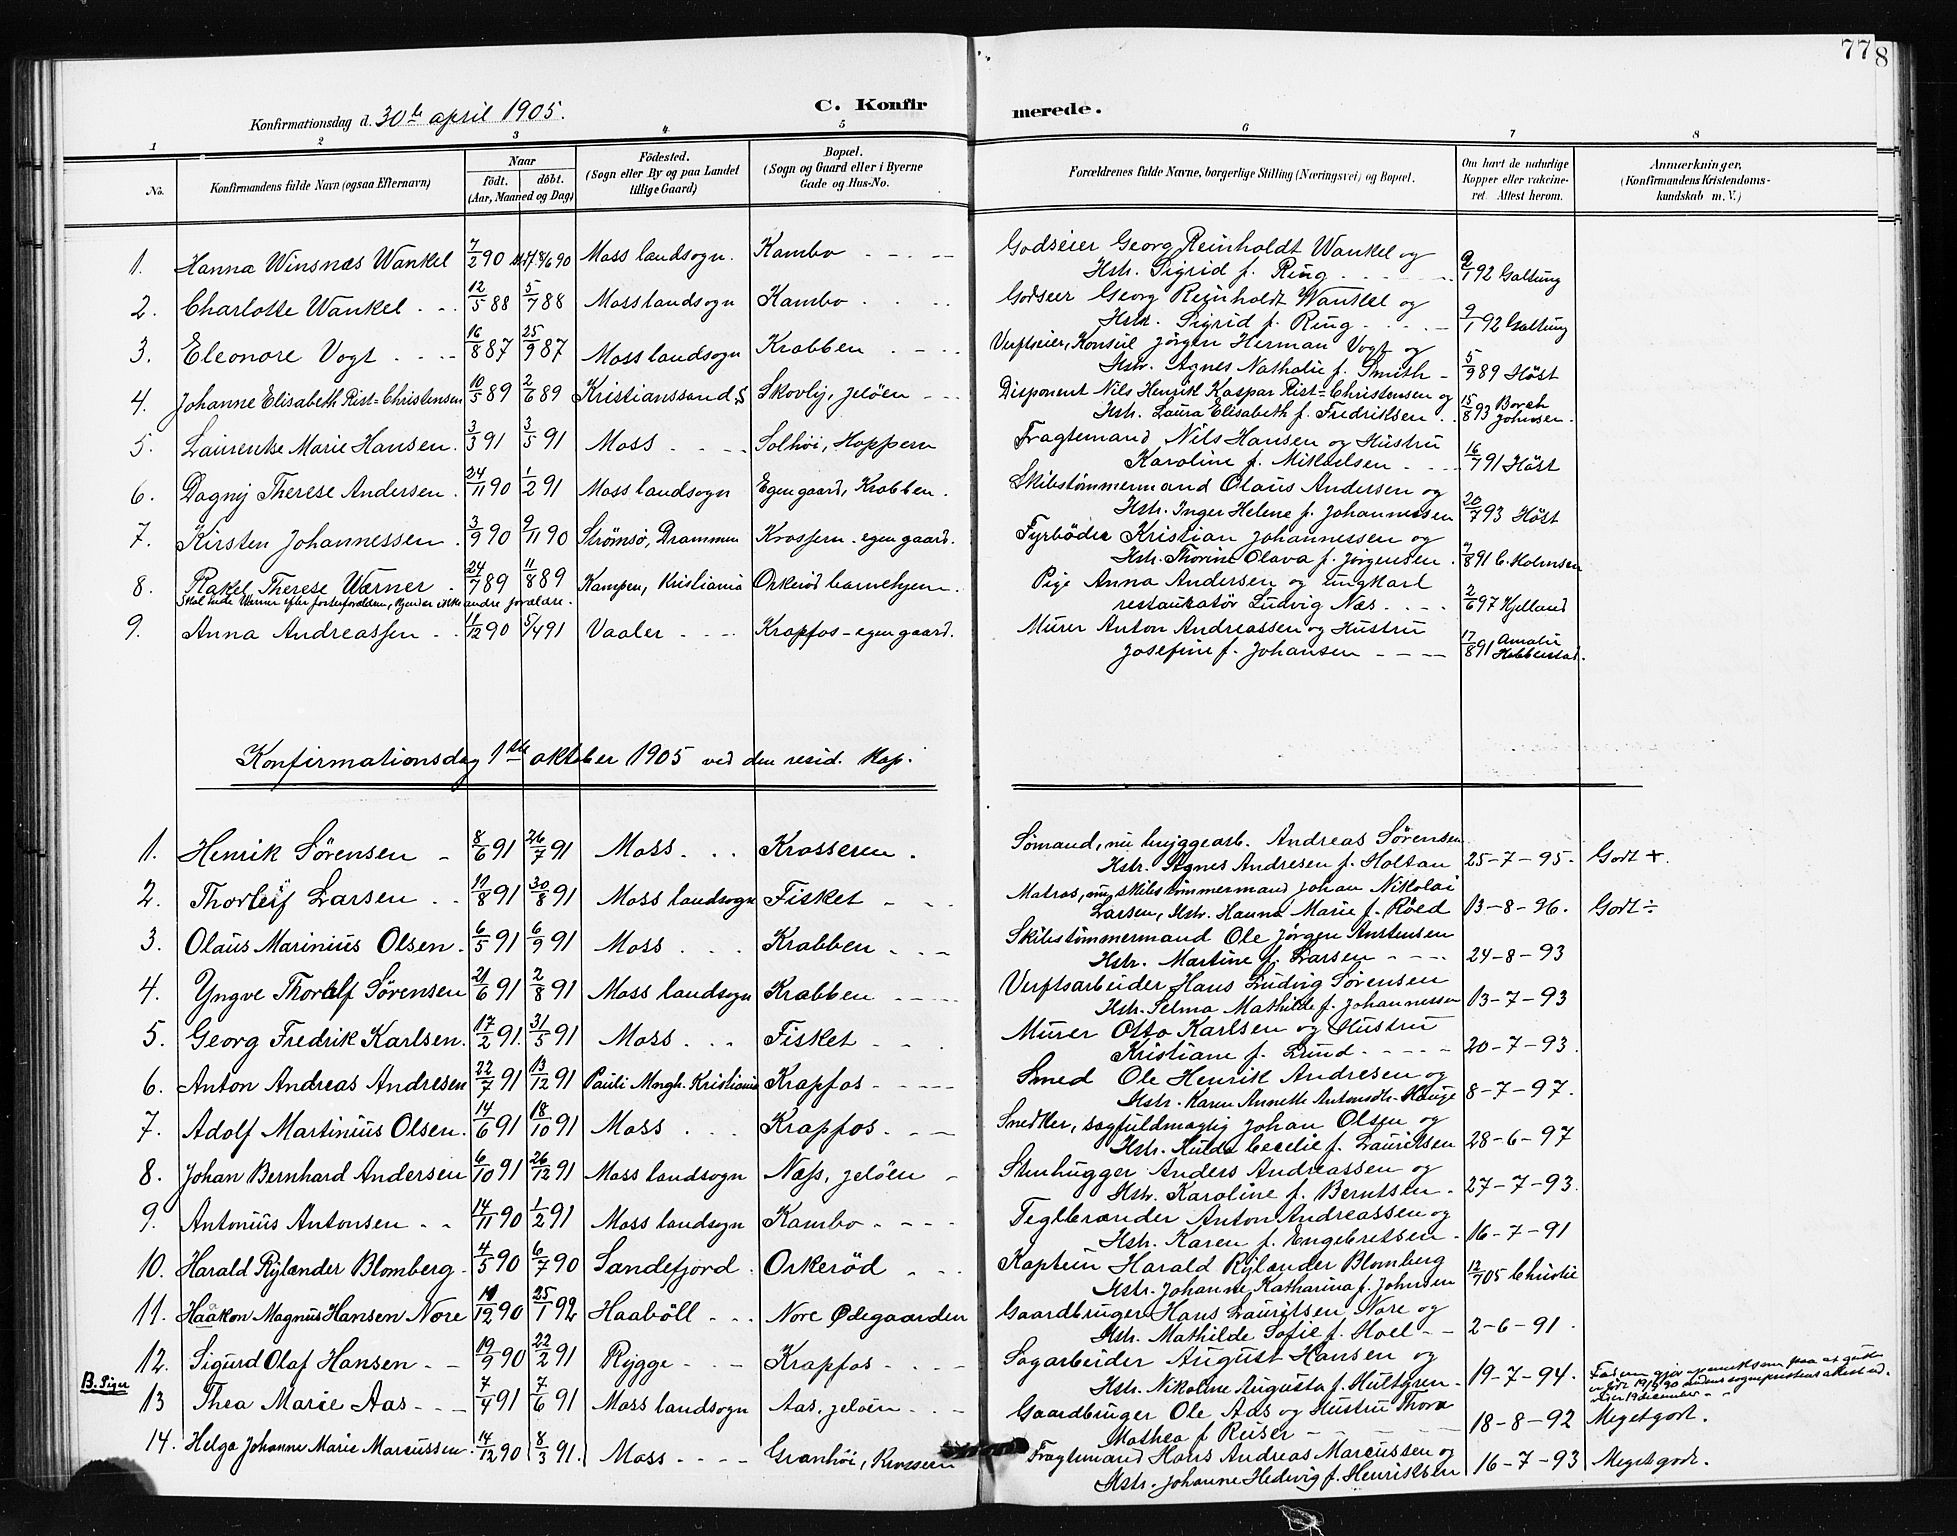 778
C. Konfirmerede.
Konfirmationsdag d. 30te april 1905.
1 2 3 4 5 6 7 8
No. Konfirmandens fulde Navn (ogsaa Efternavn) Naar födt. döbt. (Aar, Maaned og Dag) Födested. (Sogn eller By og paa Landet tillige Gaard) Bopæl. (Sogn og Gaard eller i Byerne Gade og Hus-No.) Forældrenes fulde Navne, borgerlige Stilling (Næringsvei) og Bopæl. Om havt de naturlige Kopper eller vakcineret. Attest herom. Anmærkninger. (Konfirmandens Kristendomskundskab m. V.)
1. Hanna Winsnæs Wankel 7/2 90 8/6 90 Moss landsogn. Kambo Godseier Georg Reinholdt Wankel og
Hstr. Sigrid f. Ring 9/1 92 Galtung
2. Charlotte Wankel 12/5 88 5/7 88 Moss landsogn Kambo Godseier Georg Reinholdt Wankel og
Hstr. Sigrid f. Ring 9/1 92 Galtung
3. Eleonore Vogt 16/8 87 25/9 87 Moss landsogn Krabben Verftseier, Konsul Jörgen Herman Vogt og
Hstr. Agnes Nathalie f. Smith 5/9 89 Höst
4. Johanne Elisabeth Rist-Christensen 10/5 89 2/6 89 Kristianssand S Skovly, Jelöen Disponent Nils Henrik Kaspar Rist-Christensen og
Hstr. Laura Elisabeth f. Fredriksen 15/8 93 Borch Johnsen.
5. Laurentse Marie Hansen. 3/3 91 3/5 91 Moss Solhöi, Hoppern Fragtemand Nils Hansen og Hustru
Karoline f. Mikaelsen 16/7 91 Höst
6. Dagny Therese Andersen 24/11 90 1/2 91 Moss landsogn Egen gaard, Krabben. Skibstömmermand Olaus Andersen og
Hstr. Inger Helene f. Johannessen 20/7 93 Höst
7. Kirsten Johannessen 3/9 90 9/11 90 Strömsö, Drammen Krossern - egen gaard. Fyrböder Kristian Johannessen og
Hstr. Thorine Olava f. Jörgensen. 7/8 91 C. Holmsen
8. Rakel Therese Werner 24/7 89 11/8 89 Kampen, Kristiania Orkeröd barnehjem. Pige Anna Andersen og ungkarl
Skal hede Werner efter fosterforældre, kjender ikke andre forældre. restauratör Ludvig Næs 2/6 97 Kjelland
9. Anna Andreassen 11/12 90 5/4 91 Vaaler Krapfos - egen gaard. Murer Anton Andreassen og Hustru
Josefine f. Johansen 17/8 91 Amalie Hebbelstad.
Konfirmationsdag 1ste oktober 1905 ved den resid. Kap.
1. Henrik Sörensen 8/6 91 26/7 91 Moss Krosseren. Sömand, nu bryggearb. Andreas Sörensen
Hstr. Agnes Andresen f. Holtan 25-7-95. Godt +.
2. Thorleif Larsen 10/8 91 30/8 91 Moss landsogn Fisket Matros, nu skibstömmermand Johan Nikolai
Larsen, Hstr. Hanna Marie f. Röed 13-8-96. Godt ÷
3. Olaus Marinius Olsen 6/5 91 6/9 91 Moss Krabben Skibstömmermand Ole Jörgen Anstensen
Hstr. Martine f. Larsen 24-8-93
4. Yngve Thoralf Sörensen 21/6 91 2/8 91 Moss landsogn Krabben Verftsarbeider Hans Ludvig Sörensen
Hstr. Selma Mathilde f. Johannessen 13-7-93
5. Georg Fredrik Karlsen. 17/2 91. 31/5 91 Moss Fisket Murer Otto Karlsen og Hustru
Kristiane f. Lund 20-7-93.
6. Anton Andreas Andresen 22/7 91 13/12 91 Pauli Mngh. Kristiania Krapfos Smed Ole Henrik Andresen og
Hstr. Karen Annette Antonsdtr. Hauge 8-7-97.
7. Adolf Martinius Olsen. 14/6 91 18/10 91 Moss Krapfos Snedker, sagfuldmægtig Johan Olsen og
Hstr. Hulda Cecelie f. Lauritsen 28-6-97
8. Johan Bernhard Andersen 6/10 91 26/12 91 Moss landsogn Næss, Jelöen Stenhugger Anders Andreassen og
Hstr. Karoline f. Berntsen 27-7-93.
9. Antonius Antonsen 14/11 90 1/2 91 Moss landsogn Kambo Teglbrænder Anton Andreassen og
Hstr. Karen f. Engebretsen 16-7-91
10. Harald Rylander Blomberg 4/5 90 6/7 90 Sandefjord Orkeröd Kaptein Harald Rylander Blomberg
Hstr. Johanne Katharina f. Johnsen 12/7 05 Christie
11. Haakon Magnus Hansen Nore 10/12 90 25/1 92 Haaböll Nore Ødegaarden Gaardbruger Hans Lauritsen Nore og
Hstr. Mathilde Sofie f. Hoel 2-6-91
12. Sigurd Olaf Hansen 19/9 90 22/2 91 Rygge Krapfos Sagarbeider August Hansen og
Hstr. Nikoline Augusta f. Hultgren 19-7-94. Faderen gjör opmerksom paa at gutten er född 19/9 90
B. Piger
13 Thea Marie Aas 7/4 91 7/6 91 Moss landsogn Aas, Jelöen Gaardbruger Ole Aas og Hustru Thora
Mathea f Reiser 18-8-92 Meget godt.
14. Helga Johanne Marie Marcussen 14/12 90 8/3 91. Moss Granhöi, Krosseren Fragtemand Hans Andreas Marcussen og
Hstr. Johanne Hedvig f. Henriksen 16-7-93 Meget godt.